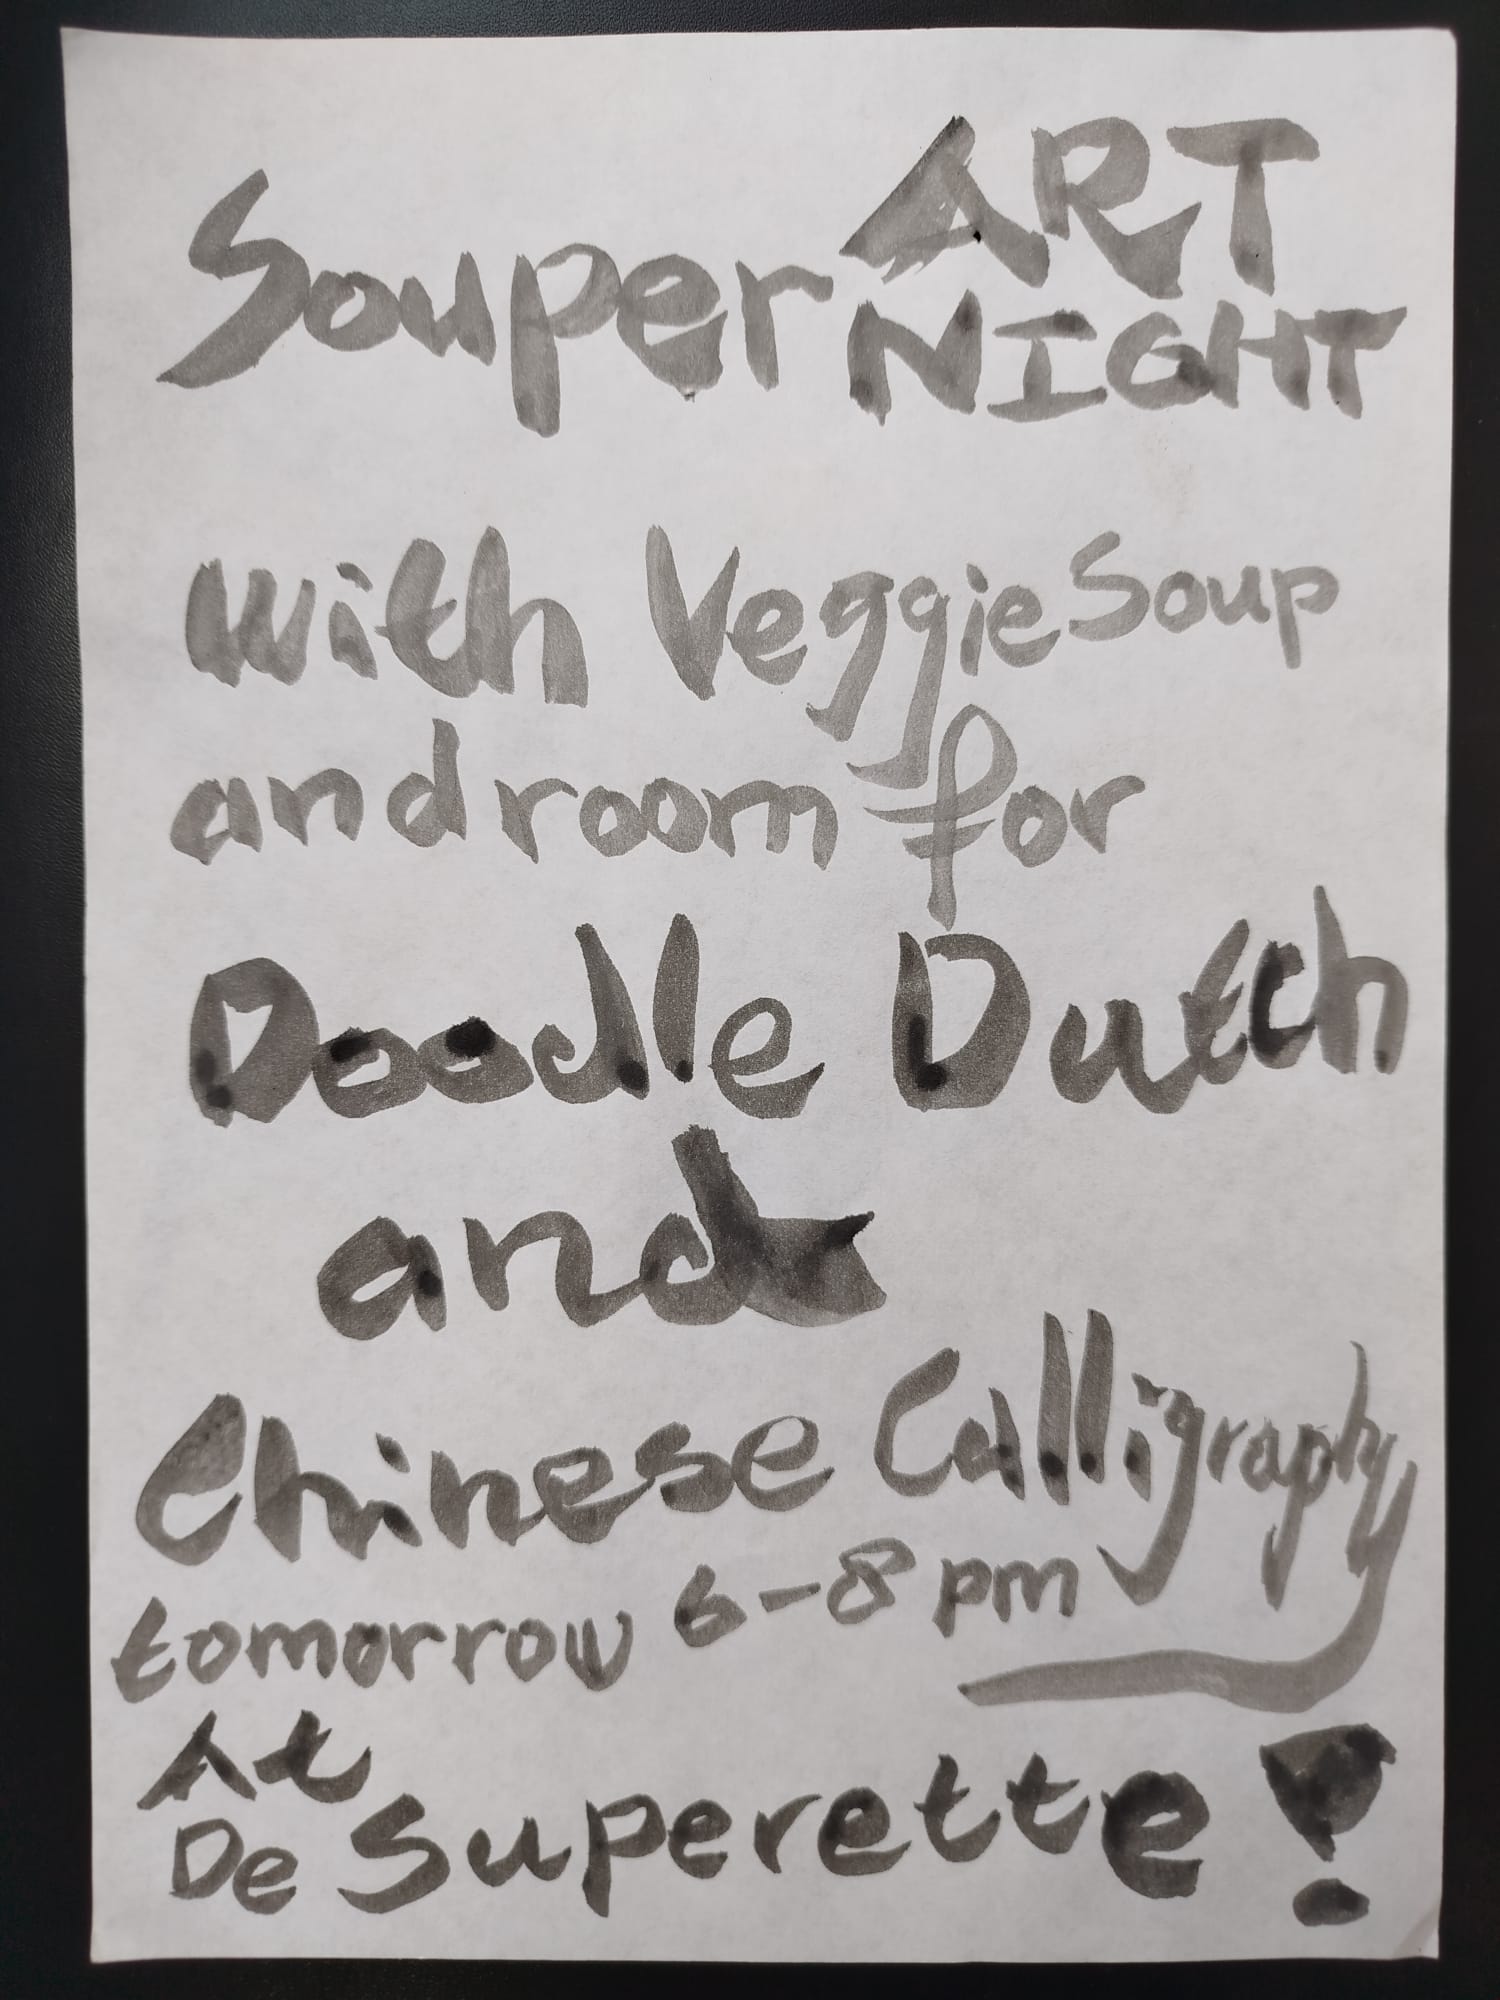 Souper ART
NIGHT
with Veggie Soup
and room for
Doodle Dutch
and
Chinese Calligraphy
tomorrow 6-8 pm
At
De Superette!